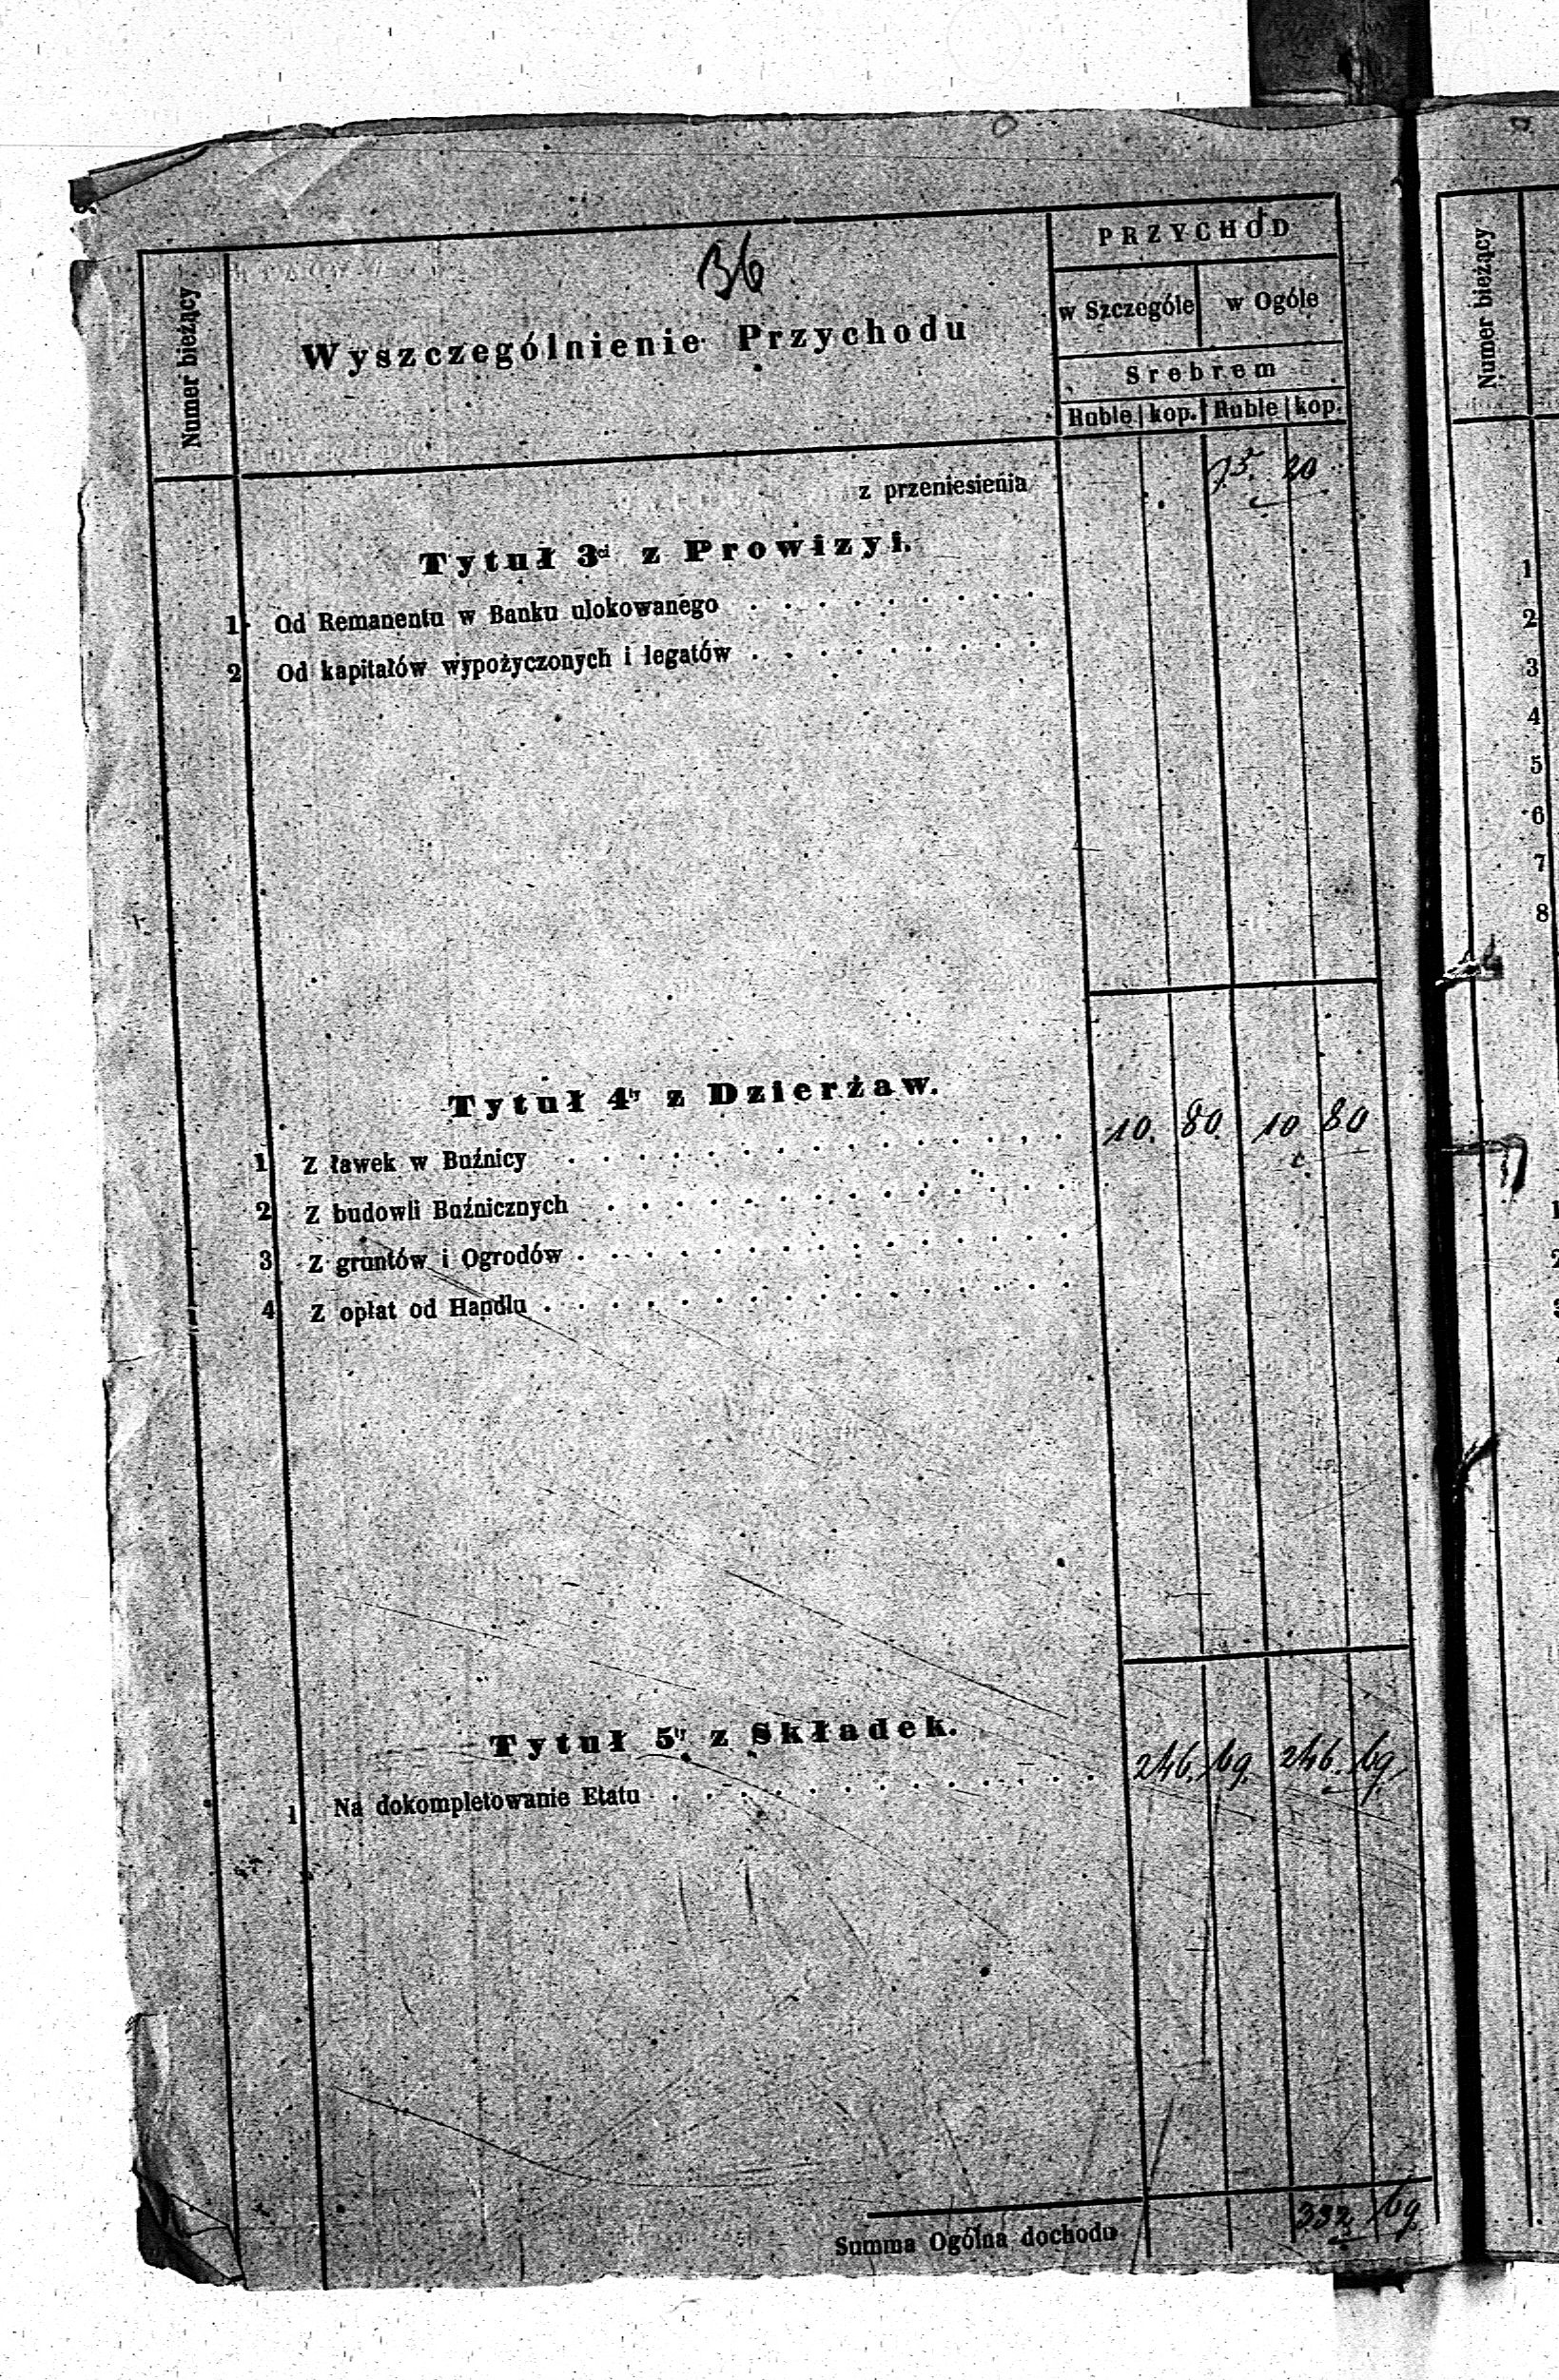 Numer bieżący
Wyszczególnienie Przychodu
PRZYCHÓD
w Szczególe w Ogóle
Srebrem
Ruble kop. Ruble kop.
z przeniesienia 75. 20
Tytuł 3ci z Prowizyi.
1 Od Remanentu w Banku ulokowanego . . . . . . . . .
2 Od kapitałów wypożyczonych i legatów . . . . . . . . .
Tytuł 4ty z Dzierżaw.
1 Z ławek w Buźnicy . . . . . . . . . . . . . . . 10. 80. 10 80
2 Z budowli Buźnicznych . . . . . . . . . . . . . .
3 Z gruntów i Ogrodów . . . . . . . . . . . . . . .
4 Z opłat od Handlu . . . . . . . . . . . . . . . .
Tytuł 5ty z Składek.
1 Na dokompletowanie Etatu . . . . . . . . . . . . . 246. 69. 246. 69.
Summa Ogólna dochodu 332 69
Numer bieżący
1
2
3
4
5
6
7
8